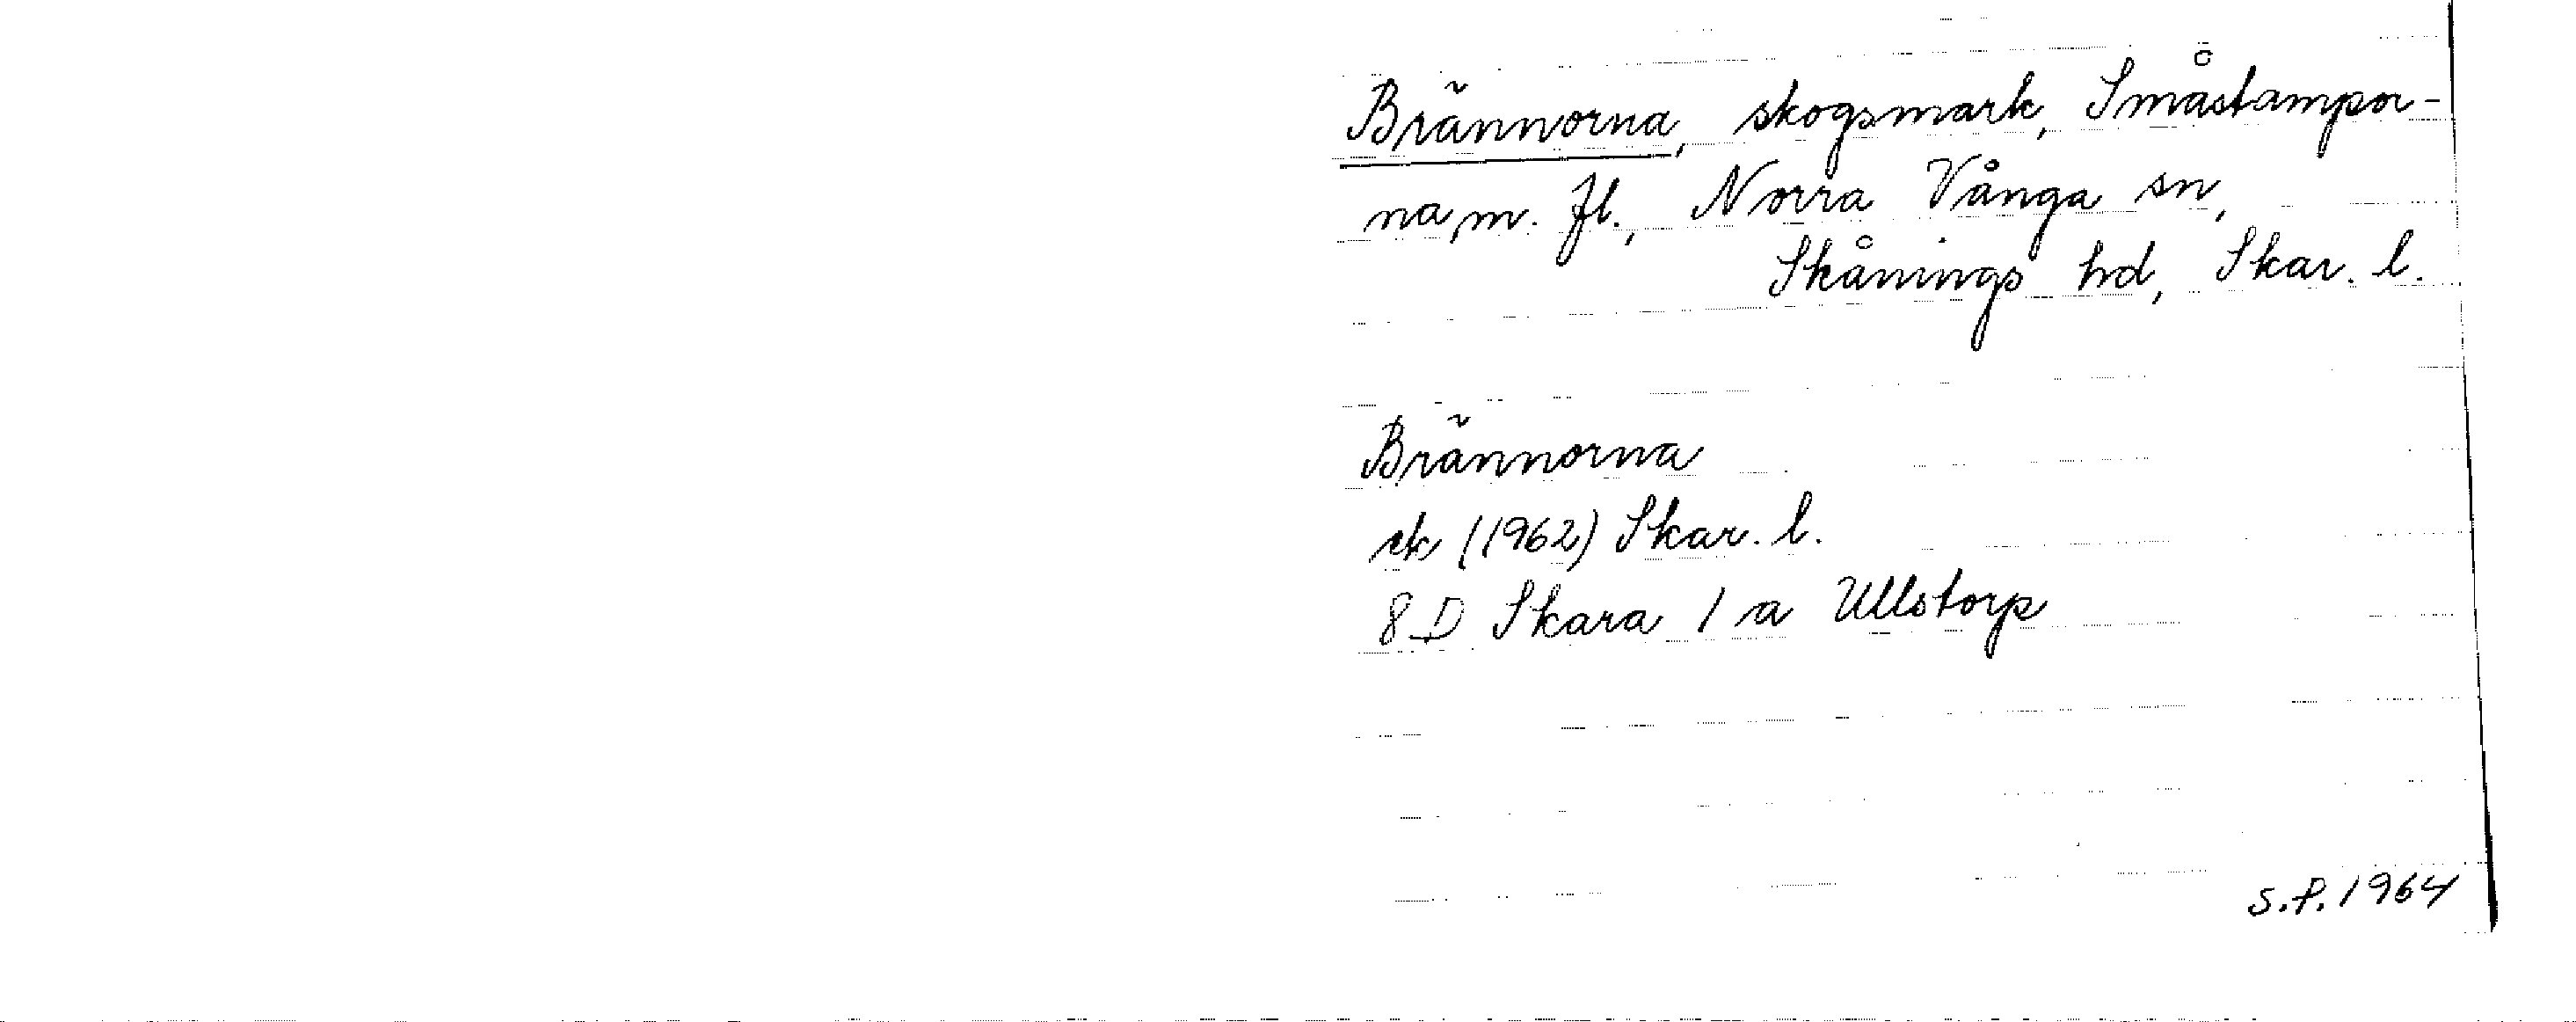 Brännorna, skogsmark, Småstampor-
na m. fl., Norra Vånga sn,
Skånings hd, Skar. l.
Brännorna
ek (1962) Skar. l.
8 D Skara 1 a Ullstorp
S.P. 1964